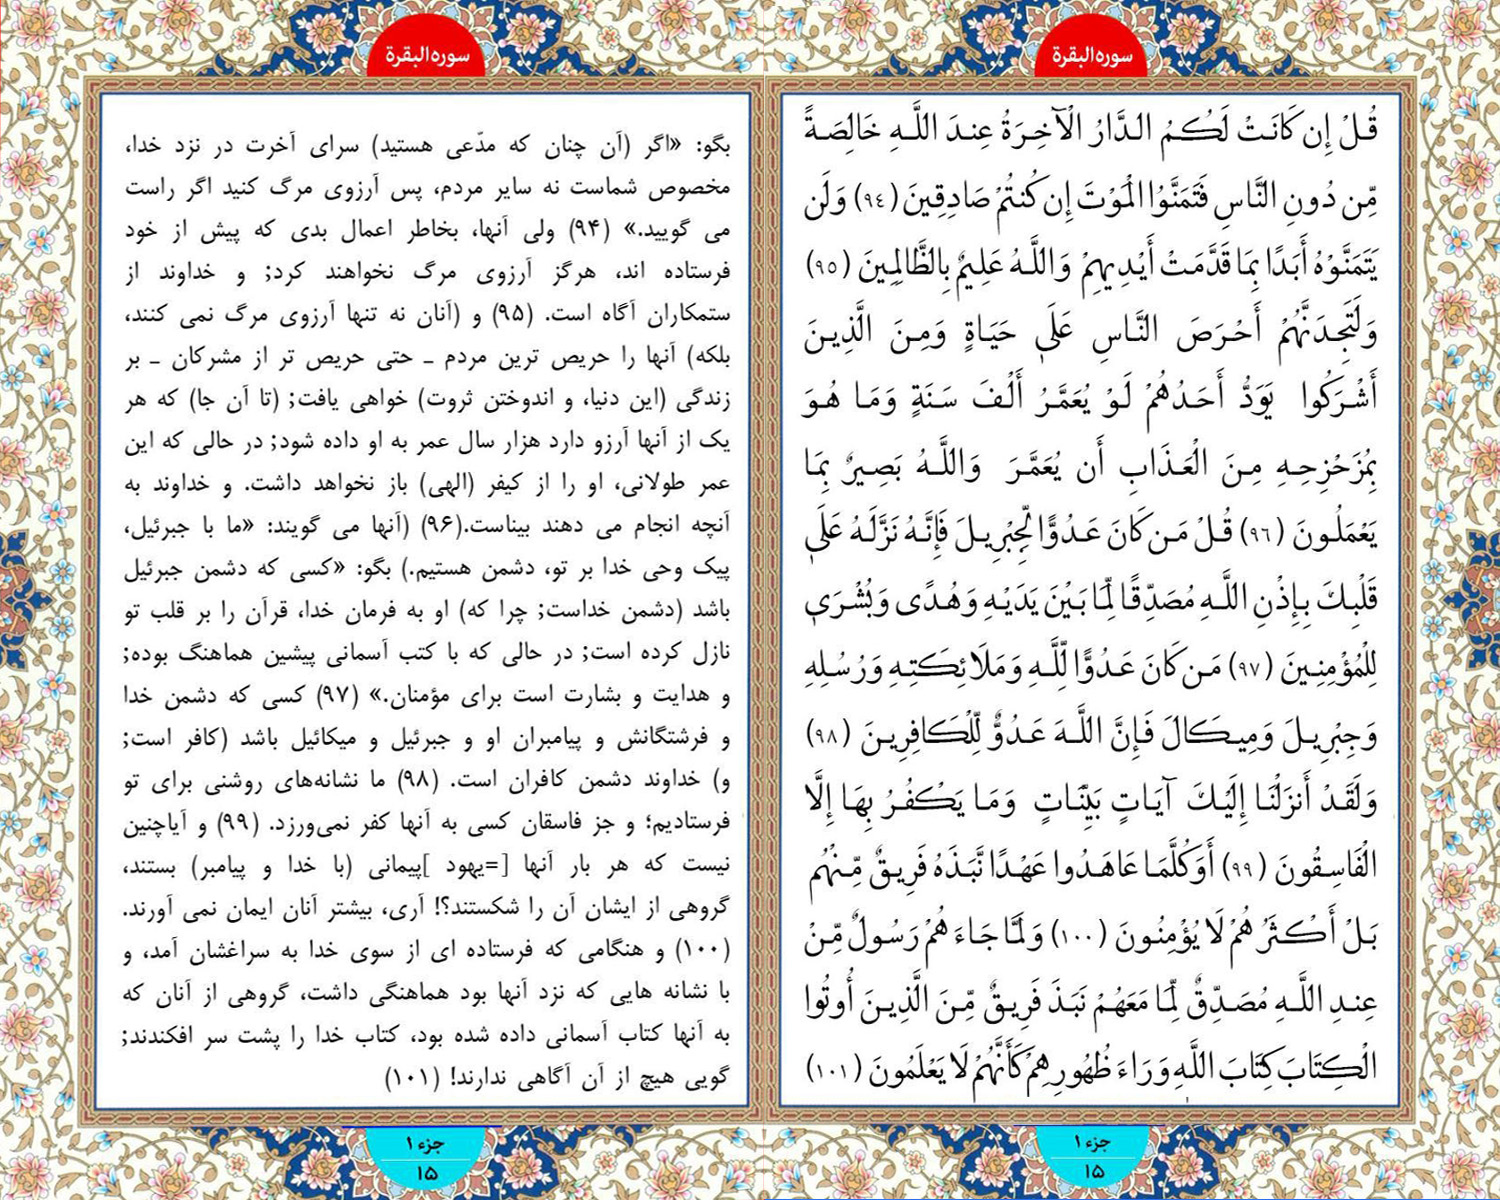 سوره البقرة
قُلْ إِن كَانَتْ لَكُمُ الدَّارُ الْآخِرَةُ عِندَ اللَّهِ خَالِصَةً
مِّن دُونِ النَّاسِ فَتَمَنَّوُا الْمَوْتَ إِن كُنتُمْ صَادِقِينَ (٩٤) وَلَن
يَتَمَنَّوْهُ أَبَدًا بِمَا قَدَّمَتْ أَيْدِيهِمْ وَاللَّهُ عَلِيمٌ بِالظَّالِمِينَ (٩٥)
وَلَتَجِدَنَّهُمْ أَحْرَصَ النَّاسِ عَلَىٰ حَيَاةٍ وَمِنَ الَّذِينَ
أَشْرَكُوا يَوَدُّ أَحَدُهُمْ لَوْ يُعَمَّرُ أَلْفَ سَنَةٍ وَمَا هُوَ
بِمُزَحْزِحِهِ مِنَ الْعَذَابِ أَن يُعَمَّرَ وَاللَّهُ بَصِيرٌ بِمَا
يَعْمَلُونَ (٩٦) قُلْ مَن كَانَ عَدُوًّا لِّجِبْرِيلَ فَإِنَّهُ نَزَّلَهُ عَلَىٰ
قَلْبِكَ بِإِذْنِ اللَّهِ مُصَدِّقًا لِّمَا بَيْنَ يَدَيْهِ وَهُدًى وَبُشْرَىٰ
لِلْمُؤْمِنِينَ (٩٧) مَن كَانَ عَدُوًّا لِّلَّهِ وَمَلَائِكَتِهِ وَرُسُلِهِ
وَجِبْرِيلَ وَمِيكَالَ فَإِنَّ اللَّهَ عَدُوٌّ لِّلْكَافِرِينَ (٩٨)
وَلَقَدْ أَنزَلْنَا إِلَيْكَ آيَاتٍ بَيِّنَاتٍ وَمَا يَكْفُرُ بِهَا إِلَّا
الْفَاسِقُونَ (٩٩) أَوَكُلَّمَا عَاهَدُوا عَهْدًا نَّبَذَهُ فَرِيقٌ مِّنْهُم
بَلْ أَكْثَرُهُمْ لَا يُؤْمِنُونَ (١٠٠) وَلَمَّا جَاءَهُمْ رَسُولٌ مِّنْ
عِندِ اللَّهِ مُصَدِّقٌ لِّمَا مَعَهُمْ نَبَذَ فَرِيقٌ مِّنَ الَّذِينَ أُوتُوا
الْكِتَابَ كِتَابَ اللَّهِ وَرَاءَ ظُهُورِهِمْ كَأَنَّهُمْ لَا يَعْلَمُونَ (١٠١)
جزء ۱
۱۵
سوره البقرة
بگو: «اگر (آن چنان که مدّعی هستید) سرای آخرت در نزد خدا،
مخصوص شماست نه سایر مردم، پس آرزوی مرگ کنید اگر راست
می گویید.» (۹۴) ولی آنها، بخاطر اعمال بدی که پیش از خود
فرستاده اند، هرگز آرزوی مرگ نخواهند کرد; و خداوند از
ستمکاران آگاه است. (۹۵) و (آنان نه تنها آرزوی مرگ نمی کنند،
بلکه) آنها را حریص ترین مردم ـ حتی حریص تر از مشرکان ـ بر
زندگی (این دنیا، و اندوختن ثروت) خواهی یافت; (تا آن جا) که هر
یک از آنها آرزو دارد هزار سال عمر به او داده شود; در حالی که این
عمر طولانی، او را از کیفر (الهی) باز نخواهد داشت. و خداوند به
آنچه انجام می دهند بیناست.(۹۶) (آنها می گویند: «ما با جبرئیل،
پیک وحی خدا بر تو، دشمن هستیم.) بگو: «کسی که دشمن جبرئیل
باشد (دشمن خداست; چرا که) او به فرمان خدا، قرآن را بر قلب تو
نازل کرده است; در حالی که با کتب آسمانی پیشین هماهنگ بوده;
و هدایت و بشارت است برای مؤمنان.» (۹۷) کسی که دشمن خدا
و فرشتگانش و پیامبران او و جبرئیل و میکائیل باشد (کافر است;
و) خداوند دشمن کافران است. (۹۸) ما نشانه‌های روشنی برای تو
فرستادیم؛ و جز فاسقان کسی به آنها کفر نمی‌ورزد. (۹۹) و آیاچنین
نیست که هر بار آنها [=یهود ]پیمانی (با خدا و پیامبر) بستند،
گروهی از ایشان آن را شکستند؟! آری، بیشتر آنان ایمان نمی آورند.
(۱۰۰) و هنگامی که فرستاده ای از سوی خدا به سراغشان آمد، و
با نشانه هایی که نزد آنها بود هماهنگی داشت، گروهی از آنان که
به آنها کتاب آسمانی داده شده بود، کتاب خدا را پشت سر افکندند;
گویی هیچ از آن آگاهی ندارند! (۱۰۱)
جزء ۱
۱۵